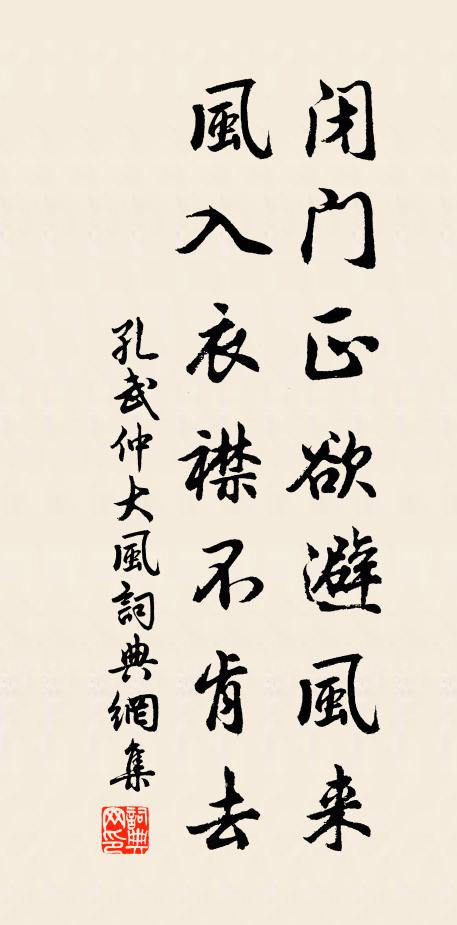 闭门正欲避風来
風入衣襟不肯去
孔武仲大風詞典網集
詞典网印